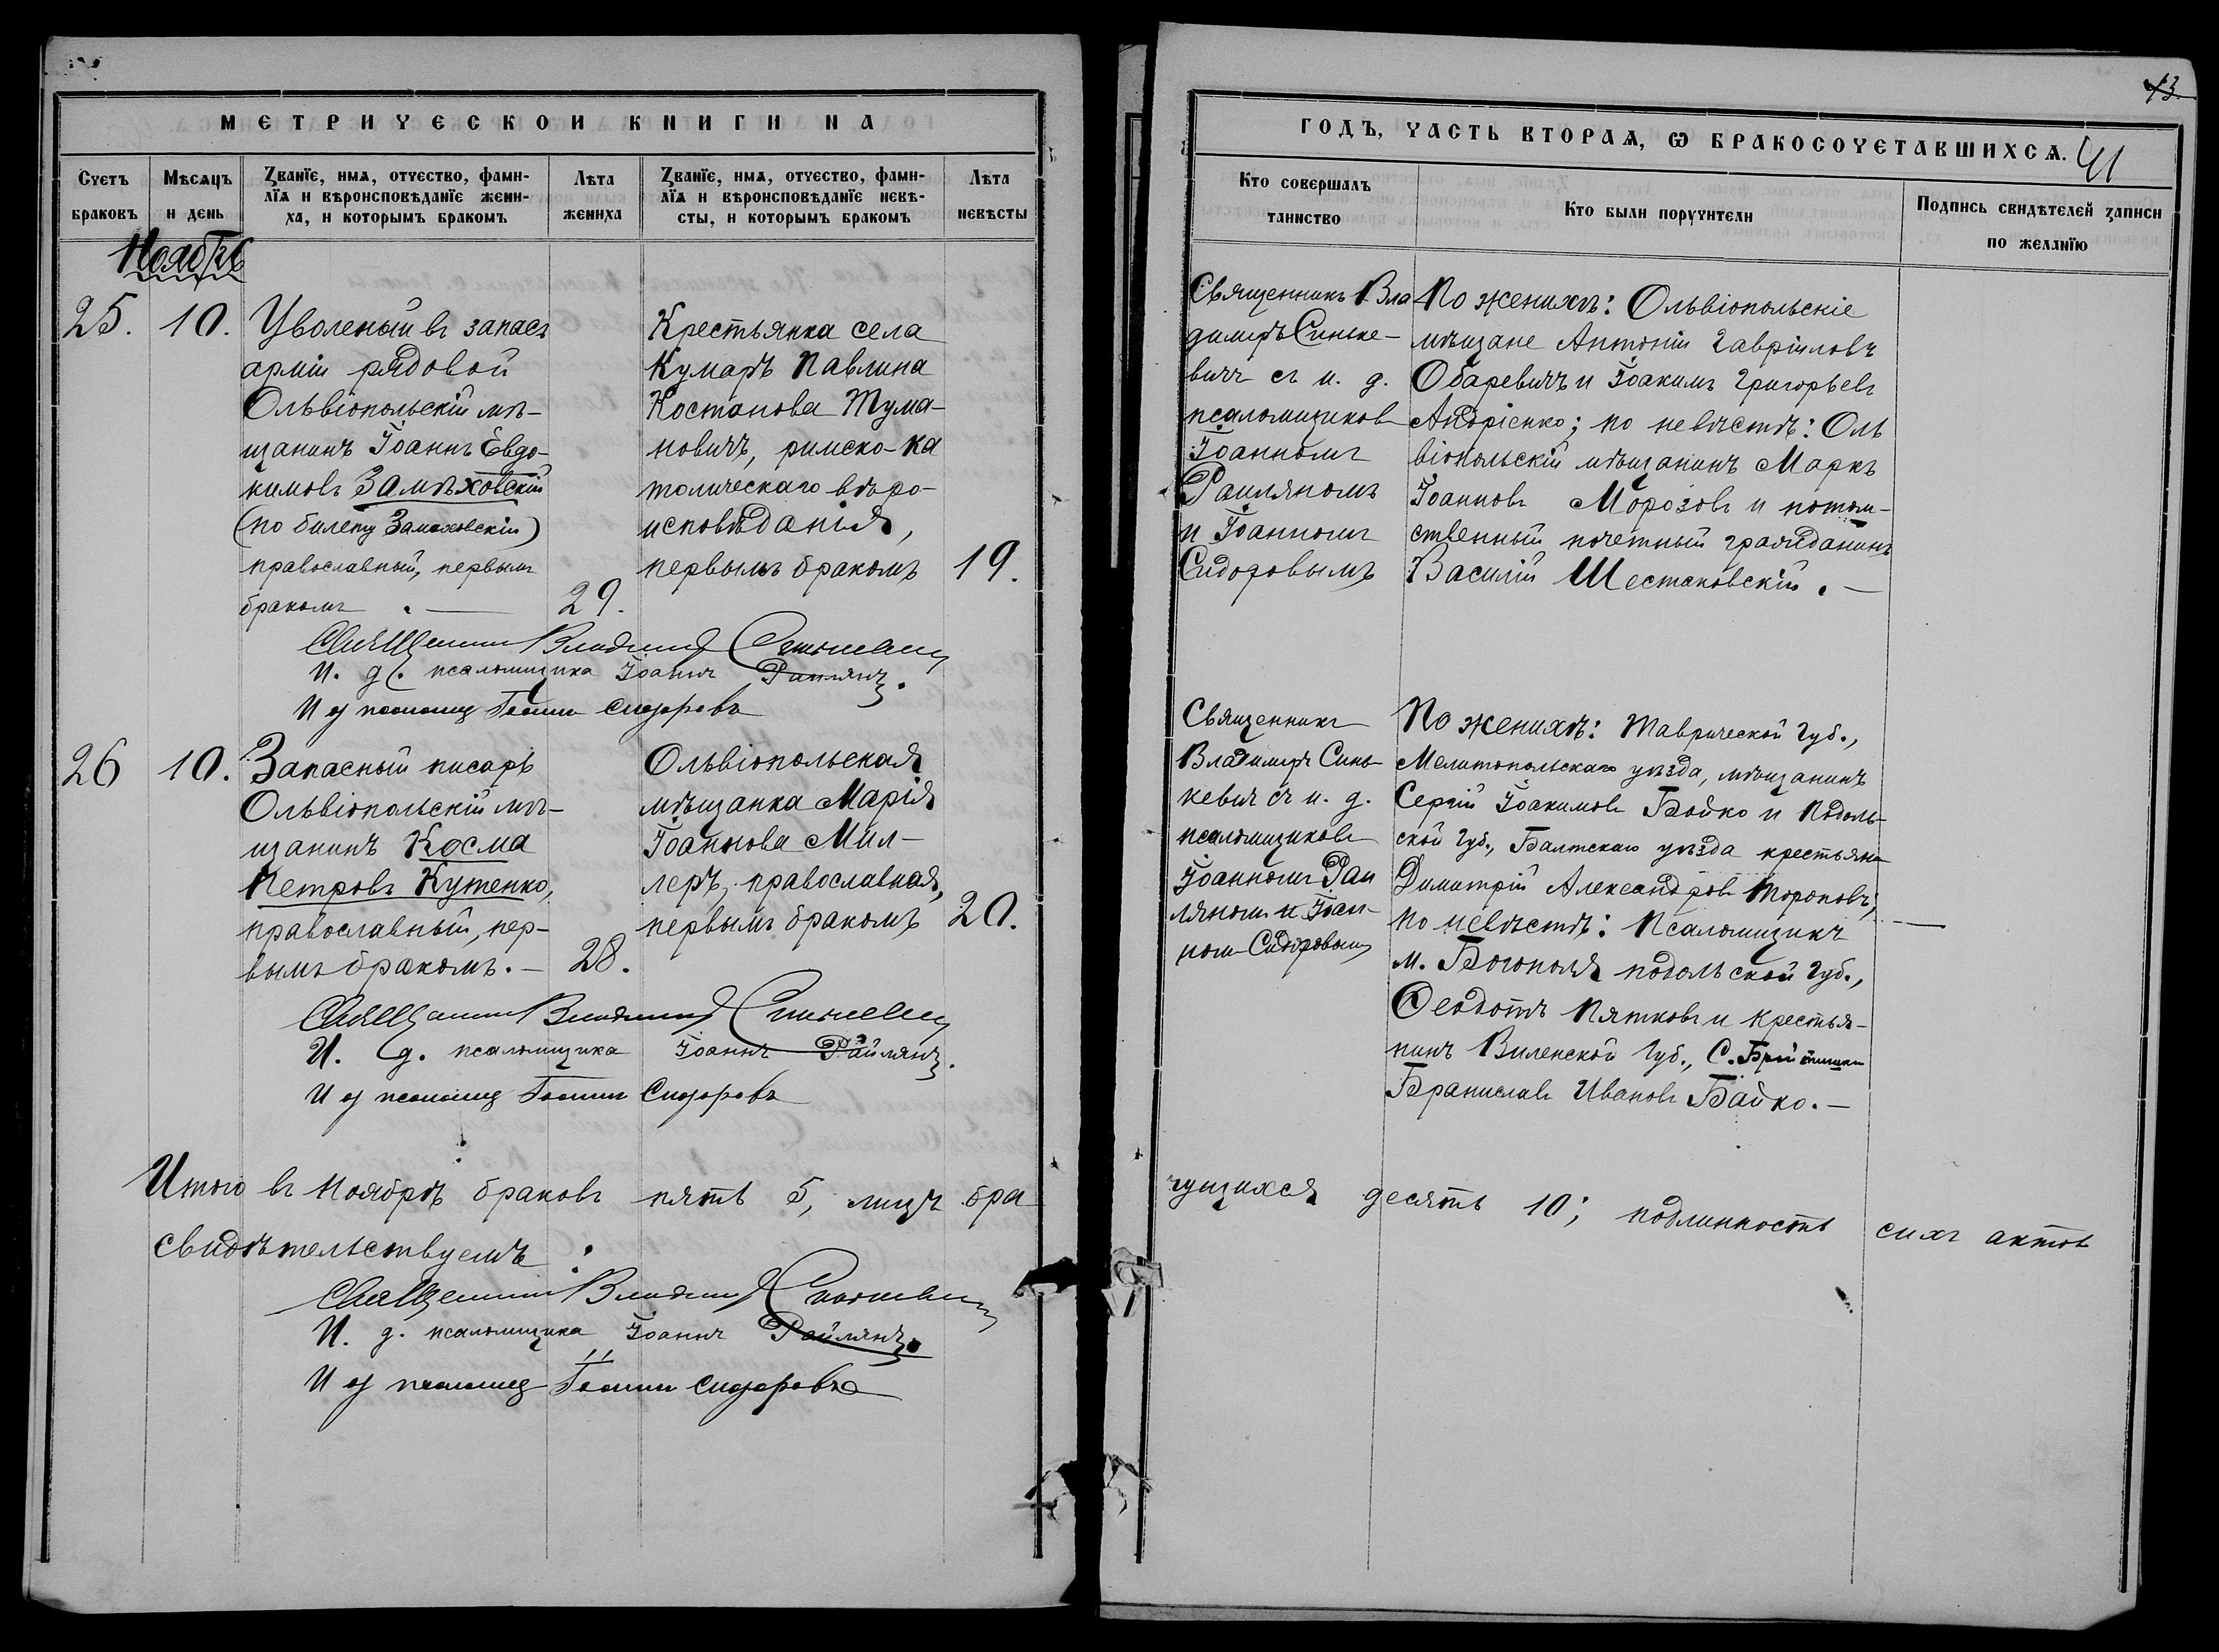 МЕТРИЧЕСКОИ КНИГИ НА
Счетъ браковъ
Мѣсяцъ и день
Званїе, имѧ, отчество, фами-
лїѧ и вѣроисповѣданїе жени-
ха, и которымъ бракомъ
Лѣта жениха
Званїе, имѧ, отчество, фами-
лїѧ и вѣроисповѣданїе невѣ-
сты, и которымъ бракомъ
Лѣта невѣсты
Ноябрь
25.
10.
Уволеный въ запасъ
арміи рядовой
Ольвіопольскій мѣ-
щанинъ Іоаннъ Евдо-
кимовъ Замѣховскій
(по билету Замеховскій)
православный, первымъ
бракомъ . —
29.
Крестьянка села
Кумаръ Павлина
Костанова Тума-
новичъ, римско-ка
толическаго вѣро-
исповѣданія,
первымъ бракомъ
19.
Священникъ Владимиръ Синькевичъ
И. д. псаломщика Іоаннъ Раилянъ.
И д псаломщ Іоаннъ Сидоровъ
26
10.
Запасный писарь
Ольвіопольскій мѣ-
щанинъ Косма
Петровъ Кутенко,
православный, пер-
вымъ бракомъ. —
28.
Ольвіопольская
мѣщанка Марія
Іоаннова Мил-
леръ, православная,
первымъ бракомъ
20.
Священникъ Владимиръ Синькевичъ
И. д. псаломщика Іоаннъ Райлянъ.
И д псаломщ Іоаннъ Сидоровъ
Итого въ Ноябрѣ браковъ пять 5, лицъ бра
свидѣтельствуемъ:
Священникъ Владимиръ Синькевичъ
И. д. псаломщика Іоаннъ Райлянъ.
И д псаломщ Іоаннъ Сидоровъ
13
ГОДЪ, ЧАСТЬ ВТОРАѦ, Ѡ БРАКОСОЧЕТАВШИХСѦ.
41
Кто совершалъ таинство
Кто были поручители
Подпись свидѣтелей записи
по желанїю
Священникъ Вла
димиръ Синьке-
вичъ съ и. д.
псаломщиковъ
Іоанномъ
Раиляномъ
и Іоанномъ
Сидоровымъ
По женихѣ: Ольвіопольскіе
мѣщане Антоній Гавріиловъ
Обаревичъ и Іоакимъ Григорьевъ
Андріенко; по невѣстѣ: Оль
віопольскій мѣщанинъ Маркъ
Іоанновъ Морозовъ и потом-
ственный почетный гражданинъ
Василій Шестаковскій. —
Священникъ
Владимиръ Синь-
кевичъ съ и. д.
псаломщиковъ
Іоанномъ Раи
ляномъ и Іоан-
номъ Сидоровымъ
По женихѣ: Таврической Губ.,
Мелитопольскаго уѣзда, мѣщанинъ
Сергій Іоакимовъ Бойко и Подоль-
ской Губ., Балтскаго уѣзда крестьянинъ
Димитрій Александровъ Тороповъ;
по невѣстѣ: Псаломщикъ
м. Богополя подольской Губ.,
Ѳеодотъ Пятковъ и крестья-
нинъ Виленской Губ., С.
Браниславъ Ивановъ Байко. —
чущихся десять 10; подлинность сихъ актовъ